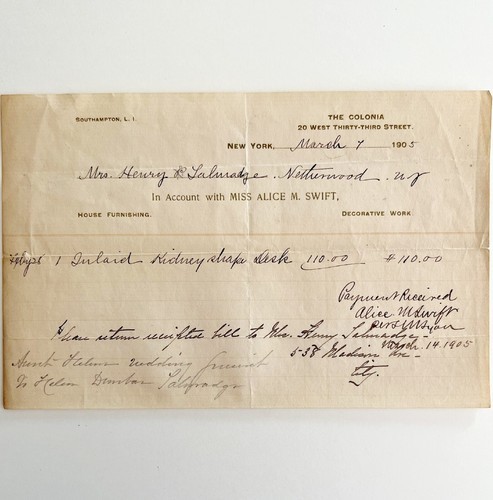 SOUTHAMPTON, L. I.
THE COLONIA
20 WEST THIRTY-THIRD STREET.
NEW YORK, March 7 1905
Mrs. Henry Talmadge. Netherwood. NJ
In Account with MISS ALICE M. SWIFT,
HOUSE FURNISHING. DECORATIVE WORK
1 Inlaid Kidney shape Desk 110.00 $110.00
Payment Received
Alice M Swift
Please return receipted bill to Mrs. Henry Talmadge-
March. 14. 1905
538 Madison Ave -
City.
Aunt Helen wedding present
To Helen Dunbar Talmadge